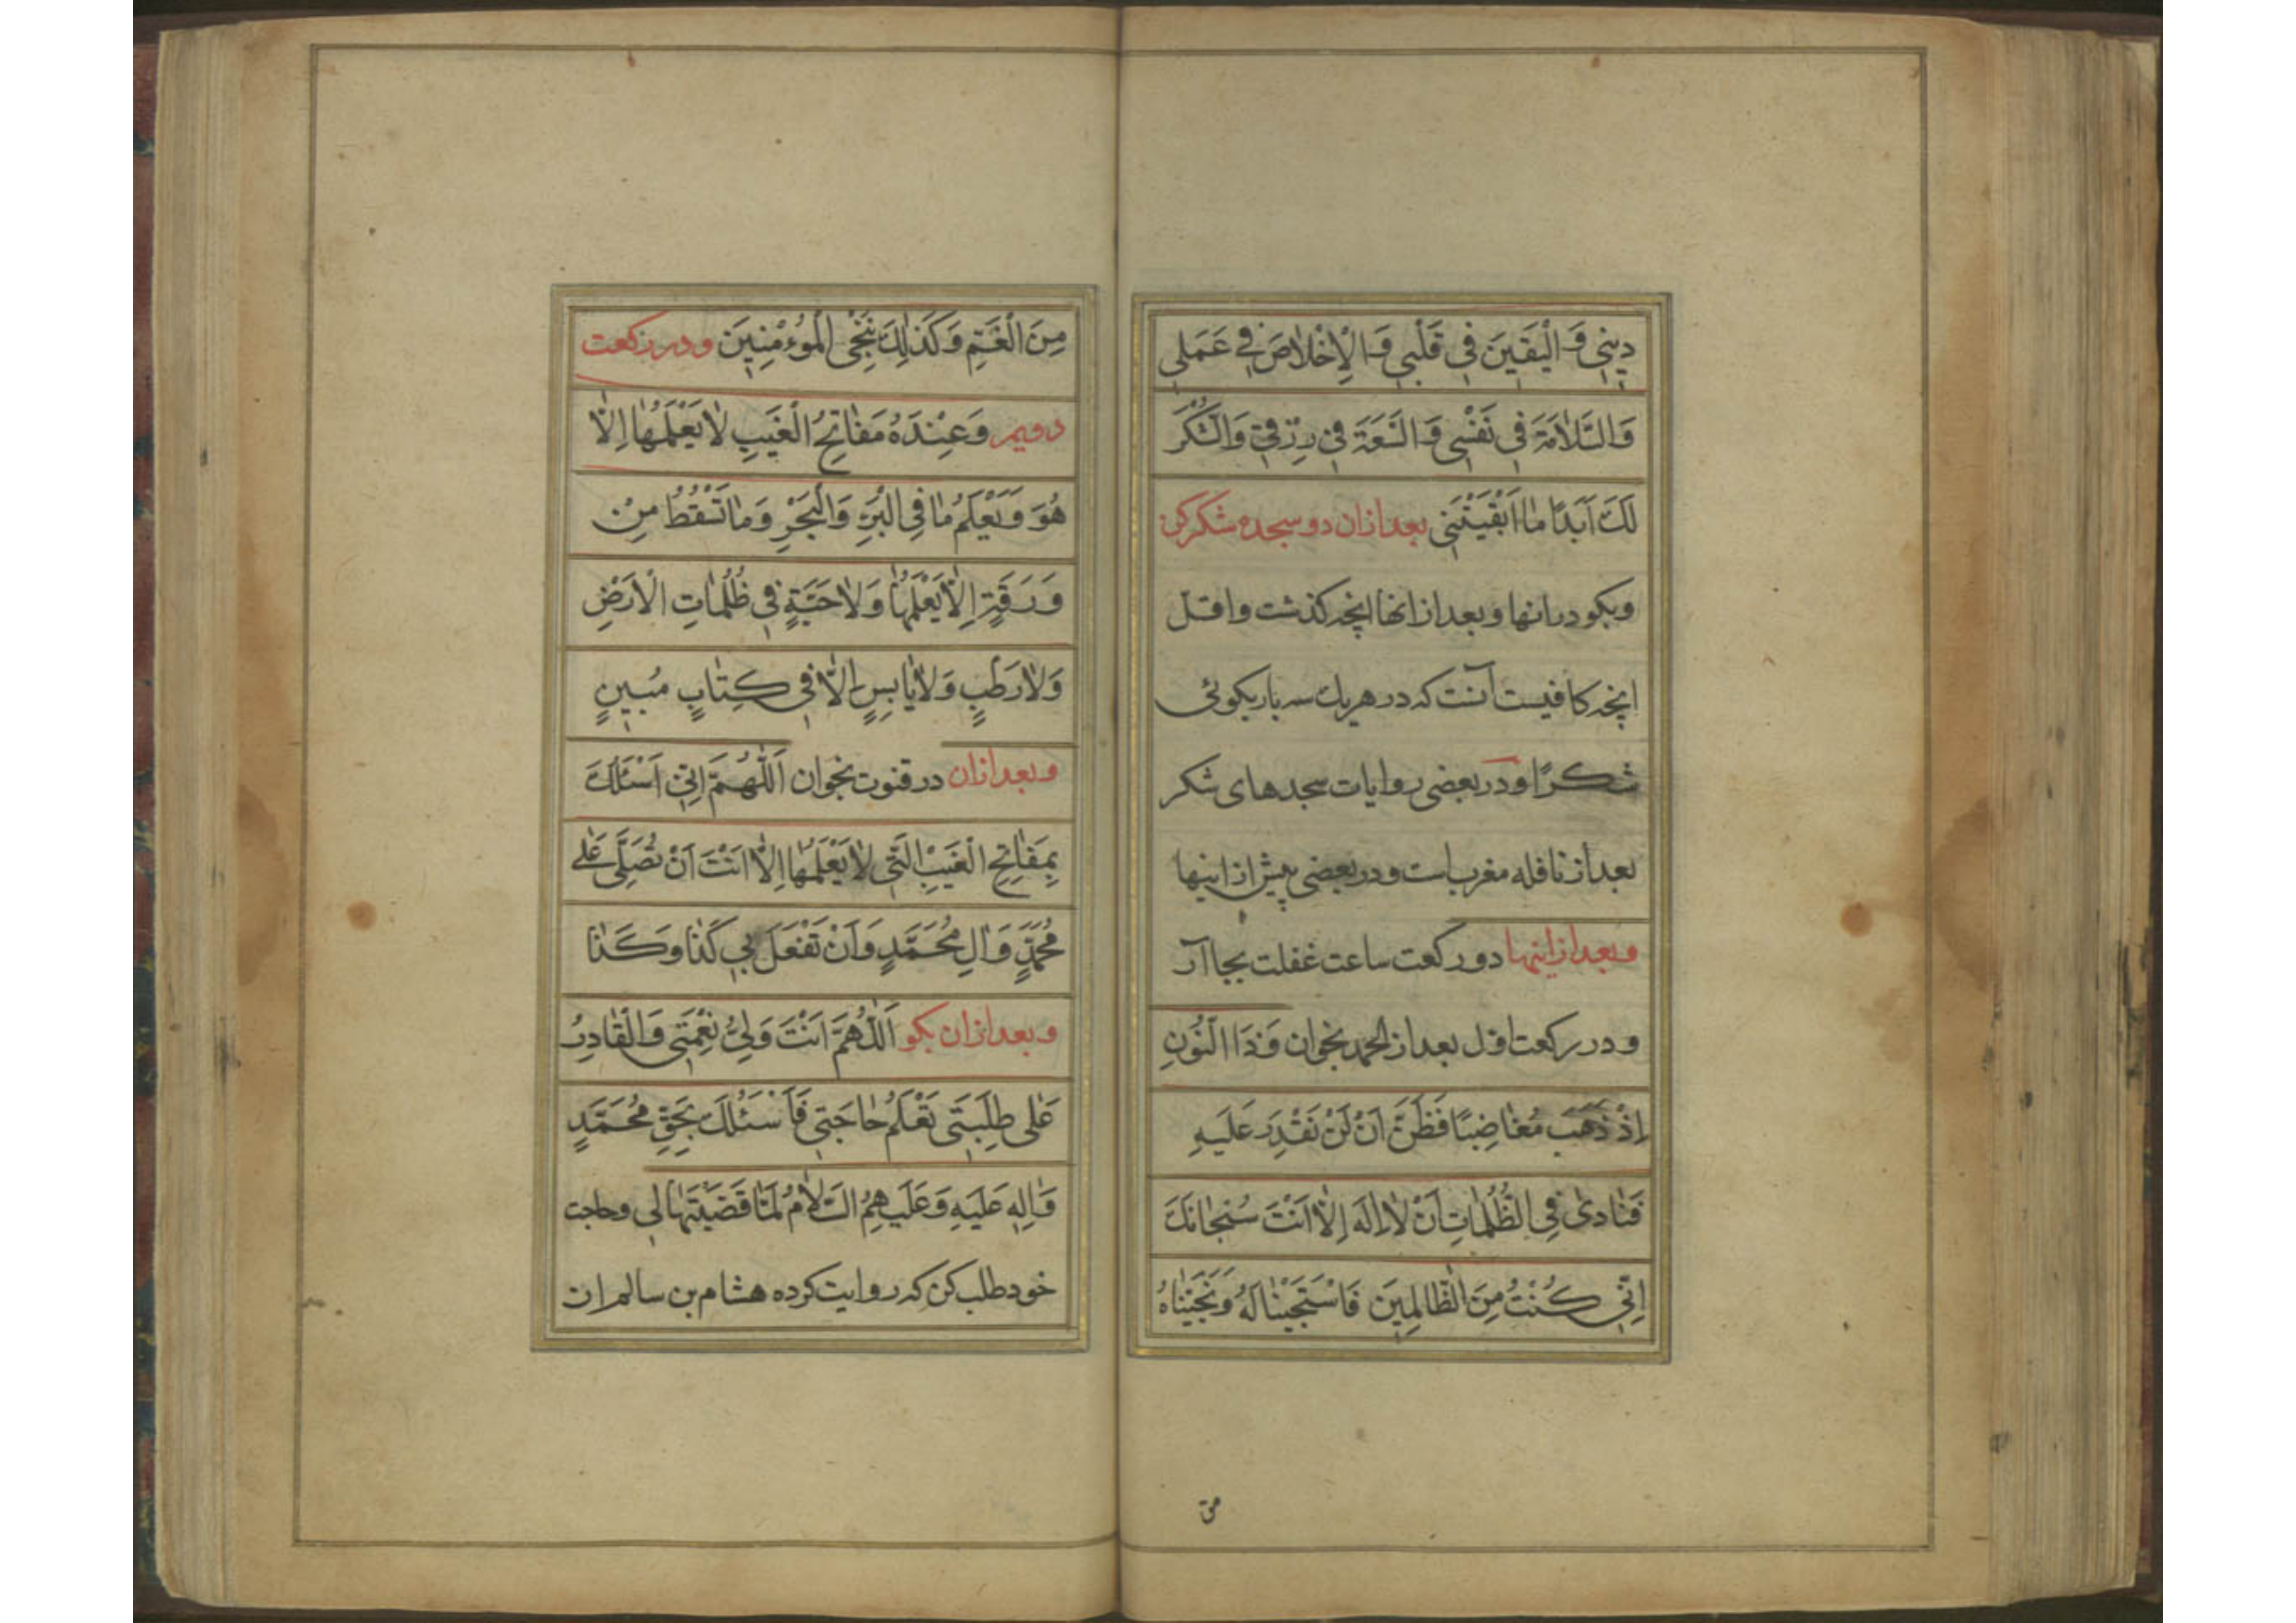 دِينِي وَالْيَقِينَ فِي قَلْبِي وَالْاِخْلَاصَ فِي عَمَلِي
وَالسَّلَامَةَ فِي نَفْسِي وَالسَّعَةَ فِي رِزْقِي وَالشُّكْرَ
لَكَ اَبَدًا مَا اَبْقَيْتَنِي بعد ازان دو سجده شکر کن
وبکو در انها وبعد از انها انچه کذشت واقل
انچه کافیست آنست که در هریك سه بار بکوئی
شکرًا ودر بعضی روایات سجدهای شکر
بعد از نافله مغرب است ودر بعضی پیش از اینها
وبعد از اینها دو رکعت ساعت غفلت بجا آر
ودر رکعت اول بعد از الحمد بخوان وَذَا النُّونِ
اِذْ ذَهَبَ مُغَاضِبًا فَظَنَّ اَنْ لَنْ نَقْدِرَ عَلَيْهِ
فَنَادٰى فِي الظُّلُمَاتِ اَنْ لَا اِلٰهَ اِلَّا اَنْتَ سُبْحَانَكَ
اِنِّي كُنْتُ مِنَ الظَّالِمِينَ فَاسْتَجَبْنَا لَهُ وَنَجَّيْنَاهُ
مِنَ الْغَمِّ وَكَذٰلِكَ نُنْجِي الْمُوءْمِنِينَ ودر رکعت
دویم وَعِنْدَهُ مَفَاتِحُ الْغَيْبِ لَا يَعْلَمُهَا اِلَّا
هُوَ وَيَعْلَمُ مَا فِي الْبَرِّ وَالْبَحْرِ وَمَا تَسْقُطُ مِنْ
وَرَقَةٍ اِلَّا يَعْلَمُهَا وَلَا حَبَّةٍ فِي ظُلُمَاتِ الْاَرْضِ
وَلَا رَطْبٍ وَلَا يَابِسٍ اِلَّا فِي كِتَابٍ مُبِينٍ
وبعد ازان در قنوت بخوان اَللّٰهُمَّ اِنِّي اَسْئَلُكَ
بِمَفَاتِحِ الْغَيْبِ الَّتِي لَا يَعْلَمُهَا اِلَّا اَنْتَ اَنْ تُصَلِّيَ عَلٰى
مُحَمَّدٍ وَاٰلِ مُحَمَّدٍ وَاَنْ تَفْعَلَ بِي كَذَا وَكَذَا
وبعد ازان بکو اَللّٰهُمَّ اَنْتَ وَلِيُّ نِعْمَتِي وَالْقَادِرُ
عَلٰى طَلِبَتِي تَعْلَمُ حَاجَتِي فَاَسْئَلُكَ بِحَقِّ مُحَمَّدٍ
وَاٰلِهِ عَلَيْهِ وَعَلَيْهِمُ السَّلَامُ لَمَّا قَضَيْتَهَا لِي وحاجت
خود طلب کن که روایت کرده هشام بن سالم از